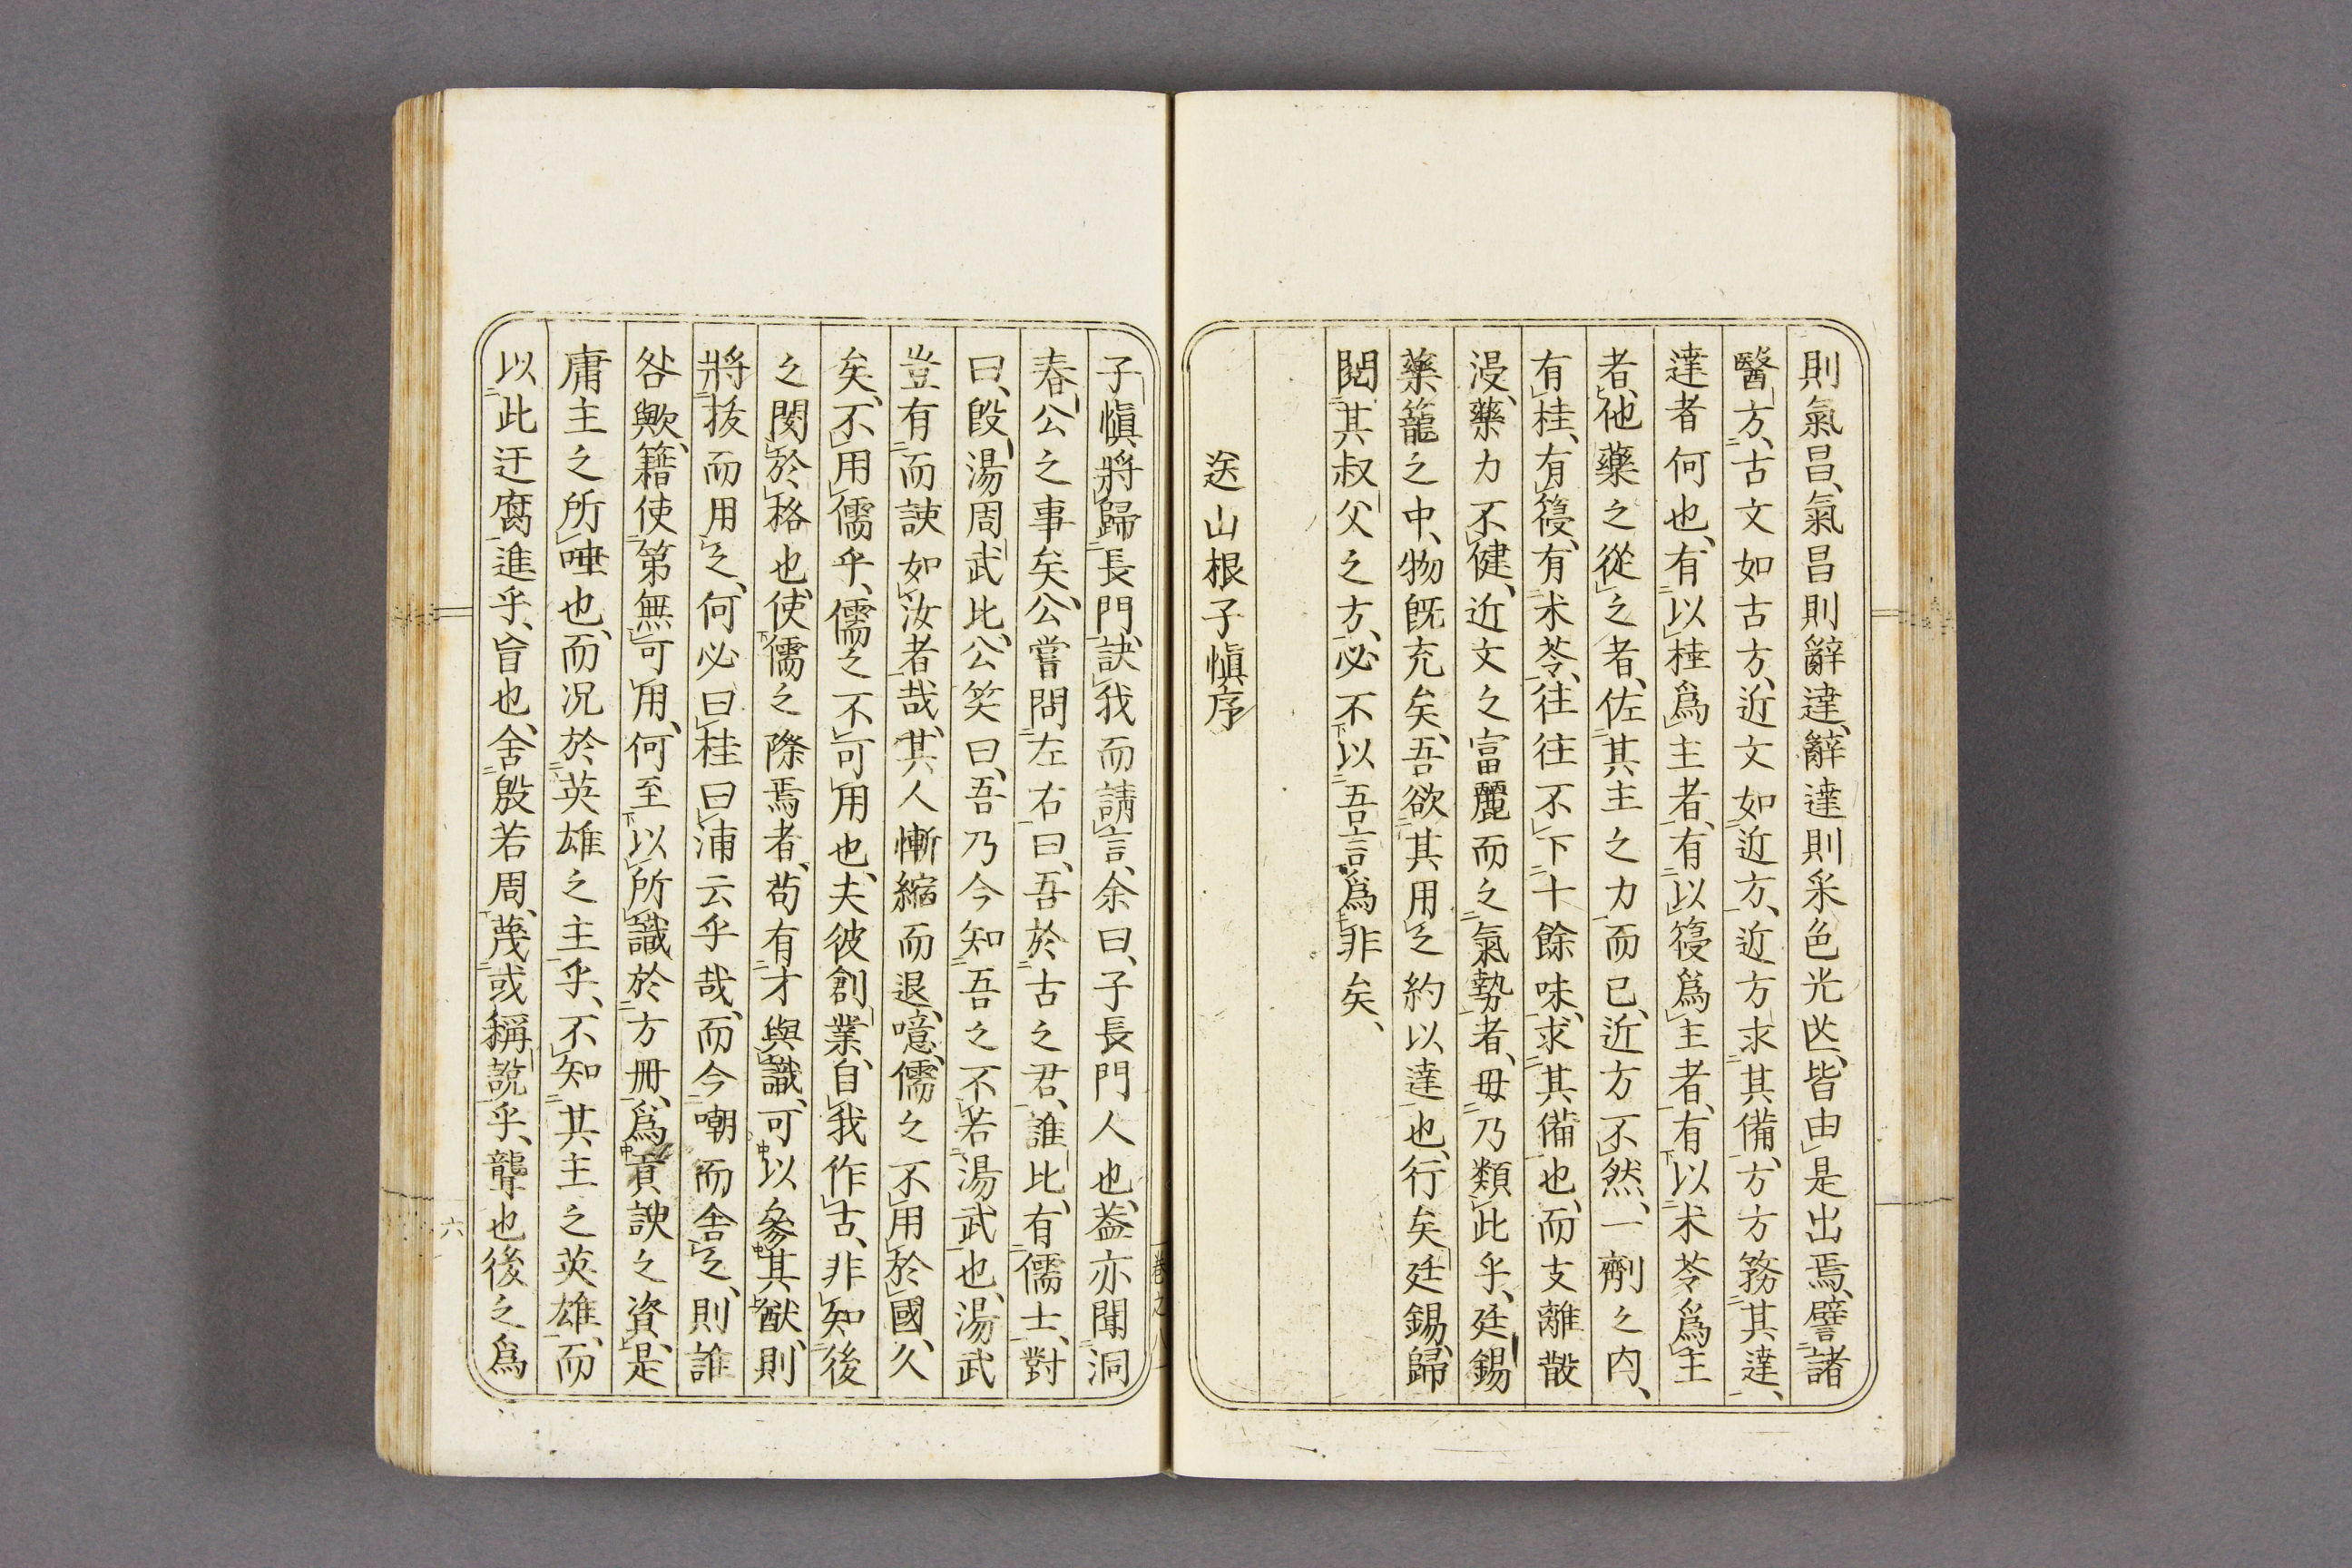 則氣昌、氣昌則辭達、辭達則采色光芒、皆由是出焉、譬諸
醫方、古文如古方、近文如近方、近方求其備、方方務其達、
達者何也、有以桂爲主者、有以葠爲主者、有以朮苓爲主
者、他藥之從之者、佐其主之力而已、近方不然、一劑之内、
有桂、有葠、有朮苓、往往不下十餘味、求其備也、而支離散
漫、藥力不健、近文之富麗而之氣勢者、毋乃類此乎、廷錫
藥籠之中、物既充矣、吾欲其用之約以達也、行矣廷錫、歸
閱其叔父之方、必不以吾言爲非矣、
送山根子愼序
子愼將歸長門、訣我而請言、余曰、子長門人也、蓋亦聞洞
春公之事矣、公嘗問左右曰、吾於古之君、誰比、有儒士、對
曰、殷湯周武比、公笑曰、吾乃今知吾之不若湯武也、湯武
豈有而諛如汝者哉、其人慚縮而退、噫、儒之不用於國、久
矣、不用儒乎、儒之不可用也、夫彼創業、自我作古、非知後
之閡於格也、使儒之際焉者、苟有才與識、可以參其猷、則
將拔而用之、何必曰桂曰浦云乎哉、而今嘲而舍之、則誰
咎歟、籍使第無可用、何至以所識於方冊、爲貢諛之資、是
庸主之所唾也、而况於英雄之主乎、不知其主之英雄、而
以此迂腐進乎、盲也、舍殷若周、蔑或稱說乎、聾也後之爲
卷之八
六